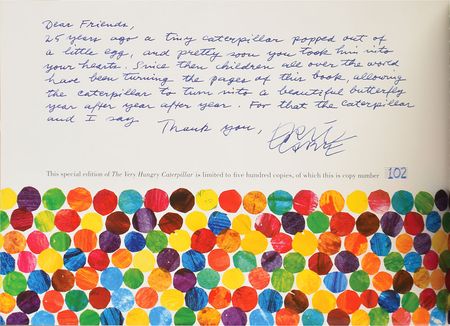 Dear Friends,
25 years ago a tiny caterpillar popped out of
a little egg, and pretty soon you took him into
your hearts. Since then children all over the world
have been turning the pages of this book, allowing
the caterpillar to turn into a beautiful butterfly
year after year after year. For that the caterpillar
and I say
Thank you, Eric Carle
This special edition of The Very Hungry Caterpillar is limited to five hundred copies, of which this is copy number 102